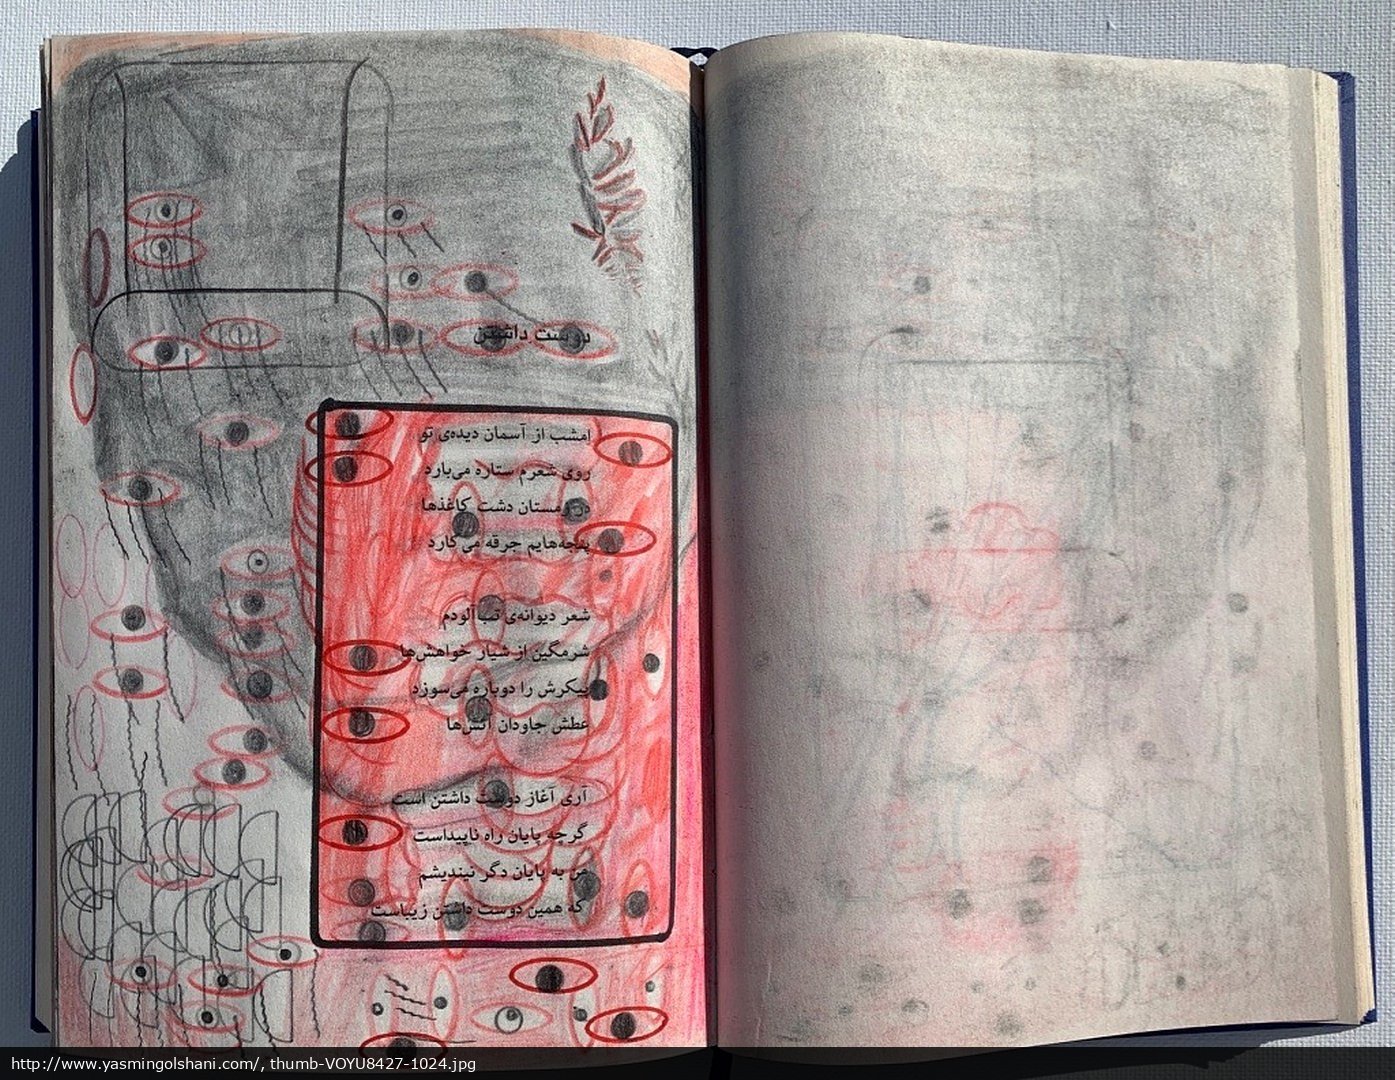 دوست داشتن
امشب از آسمان دیده‌ی تو
روی شعرم ستاره می‌بارد
در زمستان دشت کاغذها
پنجه‌هایم جرقه می‌کارد
شعر دیوانه‌ی تب‌آلودم
شرمگین از شیار خواهش‌ها
پیکرش را دوباره می‌سوزد
عطش جاودان آتش‌ها
آری آغاز دوست داشتن است
گرچه پایان راه ناپیداست
من به پایان دگر نیندیشم
که همین دوست داشتن زیباست
http://www.yasmingolshani.com/, thumb-VOYU8427-1024.jpg